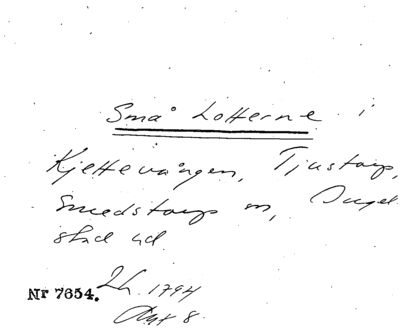 Små Lotterne i
Kjettevången, Tjustorp,
Smedstorp m,
stad ud
Nr 7654. 2h. 1794
Akt 8.